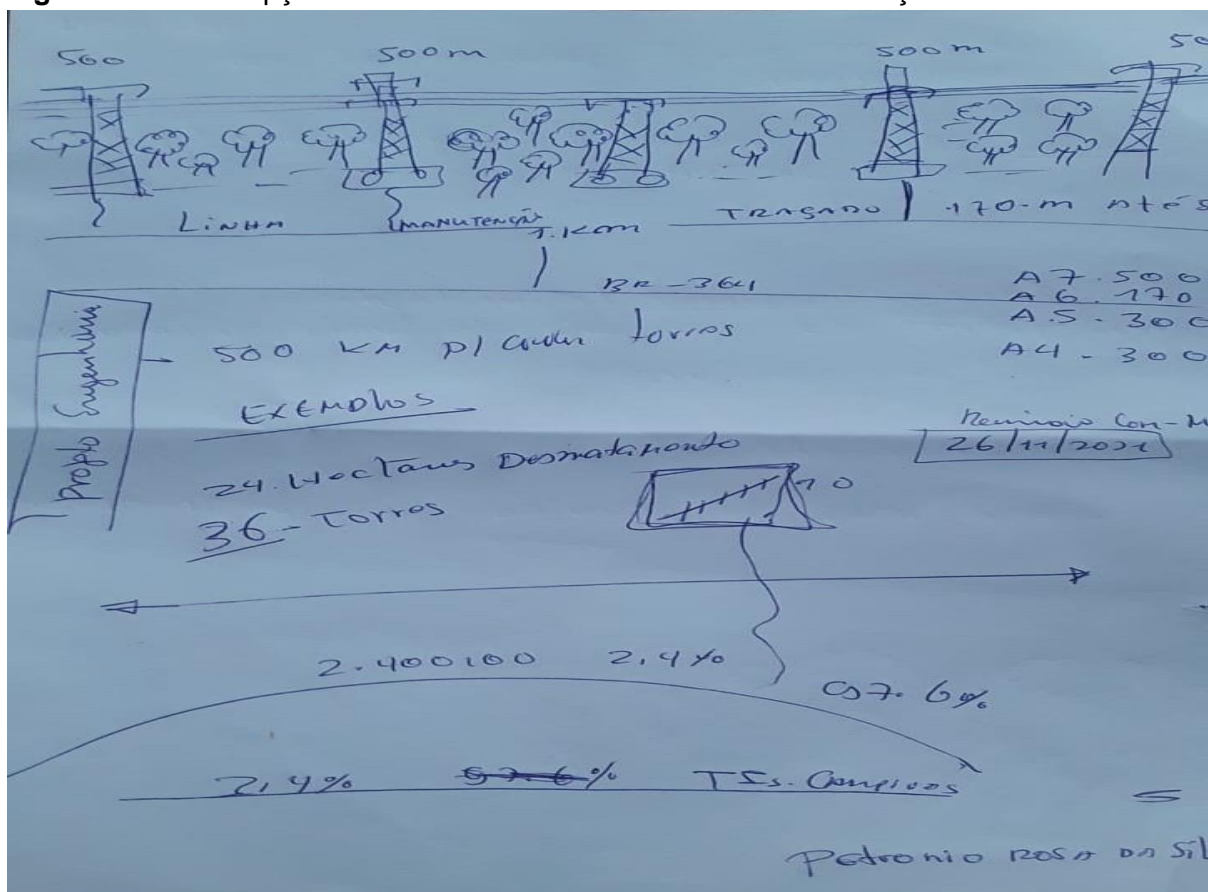 500 500m 500m
LINHA MANUTENÇÃO TRAÇADO 170-m Até S
1.Km
BR-364
A7.500
A6.170
A.5-300
A4-300
Projeto Engenharia
500 KM p/ torres
EXEMPLOS
26/11/2021
24. Hectares Desmatamento
10
36-Torres
2.400,00 2,4%
97.6%
2,4% 97.6% TIs.
Petronio ROSA DA Sil